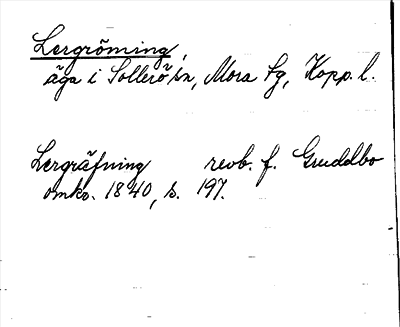 Lergröming,
äga i Sollerö sn, Mora Fg, Kopp. l.
Lergräfning revb. f. Gruddbo
omkr. 1840, s. 197.